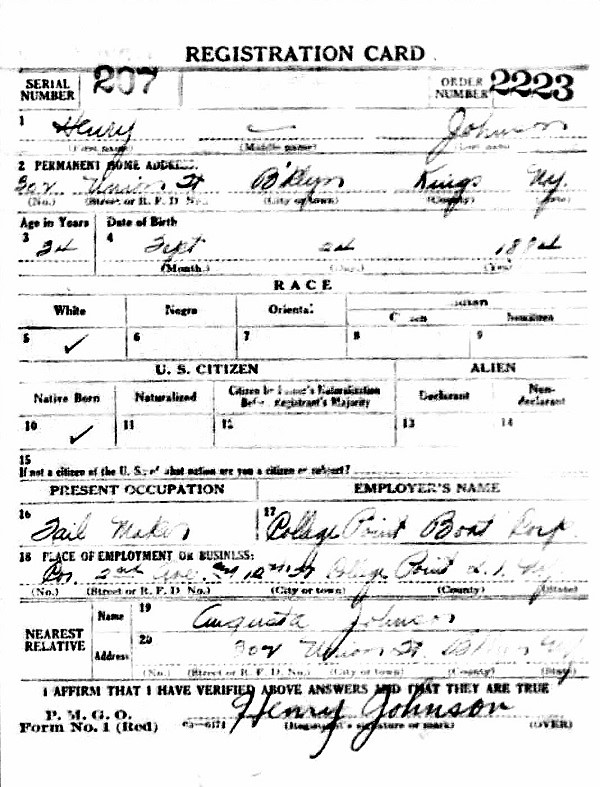 REGISTRATION CARD
SERIAL NUMBER 207 ORDER NUMBER 2223
1 Henry — Johnson
(First name) (Middle name) (Last name)
2 PERMANENT HOME ADDRESS:
302 Union St B'klyn Kings NY.
(No.) (Street or R. F. D. No.) (City or town) (County) (State)
Age in Years Date of Birth
3 34 4 Sept 2d 1884
(Month.) (Day.) (Year)
RACE
White Negro Oriental Indian
Citizen Noncitizen
5 ✓ 6 7 8 9
U. S. CITIZEN ALIEN
Native Born Naturalized Citizen by Father's Naturalization Before Registrant's Majority Declarant Non-declarant
10 ✓ 11 12 13 14
15
If not a citizen of the U. S., of what nation are you a citizen or subject?
PRESENT OCCUPATION EMPLOYER'S NAME
16 Sail Maker 17 College Point Boat Corp.
18 PLACE OF EMPLOYMENT OR BUSINESS:
Cor. 2nd Ave. College Point L. I. NY
(No.) (Street or R. F. D. No.) (City or town) (County) (State)
NEAREST RELATIVE Name 19 Augusta Johnson
Address 20 302 Union St. B'klyn NY
(No.) (Street or R. F. D. No.) (City or town) (County) (State)
I AFFIRM THAT I HAVE VERIFIED ABOVE ANSWERS AND THAT THEY ARE TRUE
P. M. G. O.
Form No. 1 (Red) 03—6171 Henry Johnson
(Registrant's signature or mark) (OVER)